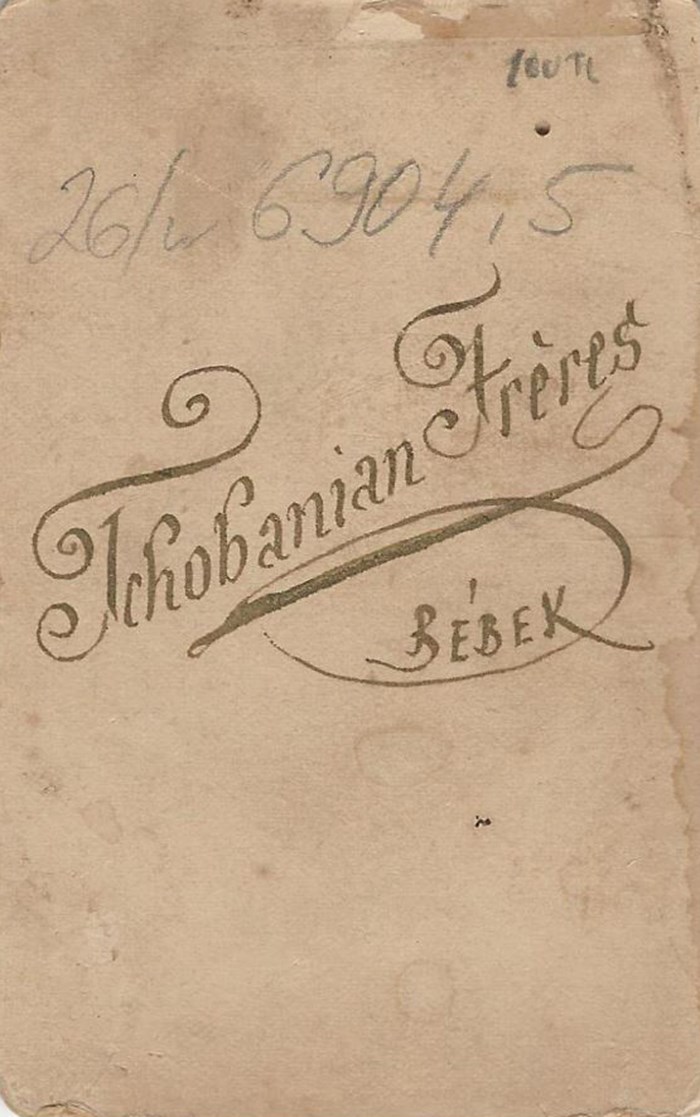 100TL
26/w 6904,5
Tchobanian Frères
BÉBEK